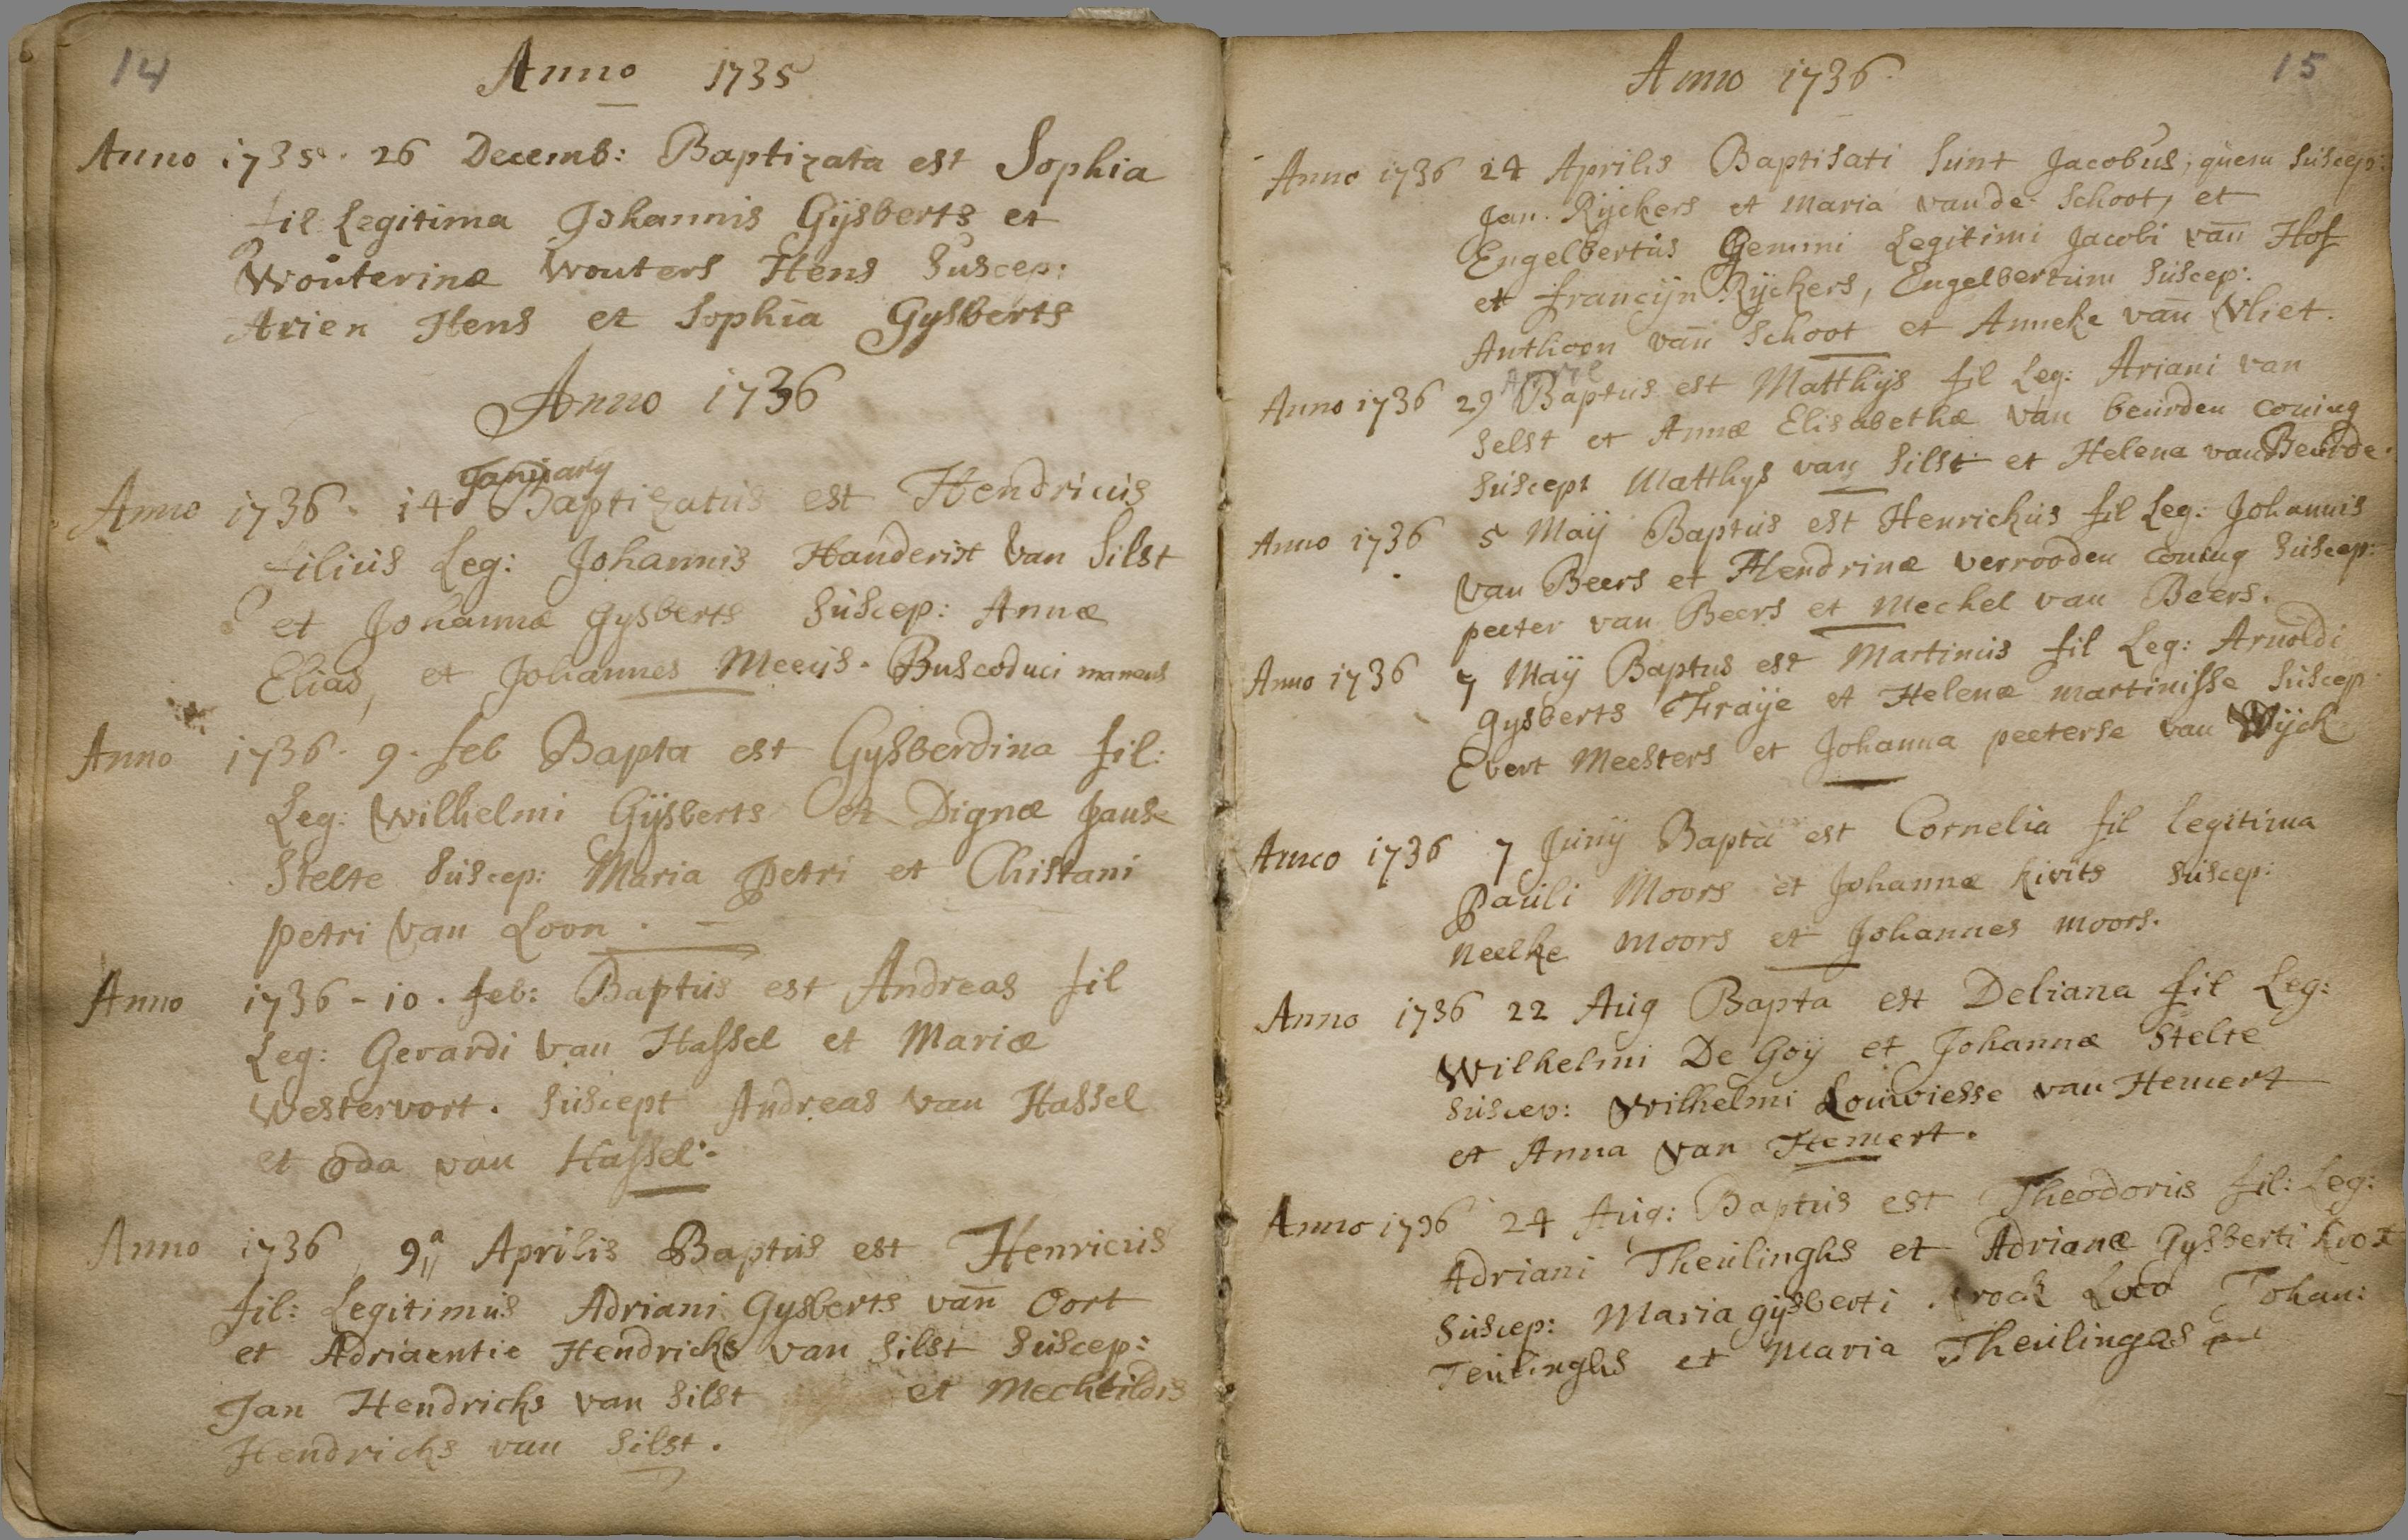 14
Anno 1735
Anno 1735. 26 Decemb: Baptizata est Sophia
fil Legitima Johannis Gijsberts et
Wouterinæ Wouters Hens Suscep:
Arien Hens et Sophia Gysberts
Anno 1736
January
Anno 1736. 14 Baptizatus est Hendricus
filius Leg: Johannis Handerist Van Silst
et Johannæ Gysberts Suscep: Annæ
Elias, et Johannes Meeijs. Buscoduci manens
Anno 1736. 9. feb Bapta est Gysberdina fil:
Leg: Wilhelmi Gijsberts et Dignæ Janse
Stelte Suscep: Maria Petri et Chistani
petri Van Loon.
Anno 1736 - 10. feb: Baptus est Andreas fil
Leg: Gerardi Van Hassel et Mariæ
Westervort. Suscept Andreas van Hassel
et oda van Hassel.
Anno 1736 9a Aprilis Baptus est Henricus
fil: Legitimus Adriani Gysberts van Oort
et Adriaentie Hendricks van Silst Suscep:
Jan Hendricks van Silst et Mechtildis
Hendricks van Silst.
15
Anno 1736
Anno 1736 24 Aprilis Baptisati Sunt Jacobus, quem Suscep:
Jan. Rijckers et Maria vande Schoot, et
Engelbertus Gemini Legitimi Jacobi van Hof
et francijn Rijckers, Engelbertum Suscep:
Anthoon van Schoot et Anneke van Vliet.
April
Anno 1736 29 Baptus est Matthijs fil Leg: Ariani van
Selst et Annæ Elisabethæ Van beurden Coning
Suscept Matthys van Silst et Helena van Beurde.
Anno 1736 5 Maij Baptus est Henrickus fil Leg: Johannis
Van Beers et Hendrinæ verrooden Coning Suscep:
peeter van Beers et Mechel van Beers.
Anno 1736 7 Maij Baptus est Martinus fil Leg: Arnoldi
Gysberts Fraije et Helenæ martinisse Suscep
Evert Meesters et Johanna peeterse van Wijck
Anno 1736 7 Junij Bapta est Cornelia fil legitima
Pauli Moors et Johannæ kivits Suscep:
Neelke Moors et Johannes moors.
Anno 1736 22 Aug Bapta est Deliana fil Leg:
Wilhelmi De Goij et Johannæ Stelte
Suscep: Wilhelmi Louwiesse van Hemert
et Anna Van Hemert.
Anno 1736 24 Aug: Baptus est Theodorus fil: Leg:
Adriani Theulinghs et Adrianæ Gysberti
Suscep: Maria gijsberti Loco Johan:
Teulinghs et Maria Theulingas